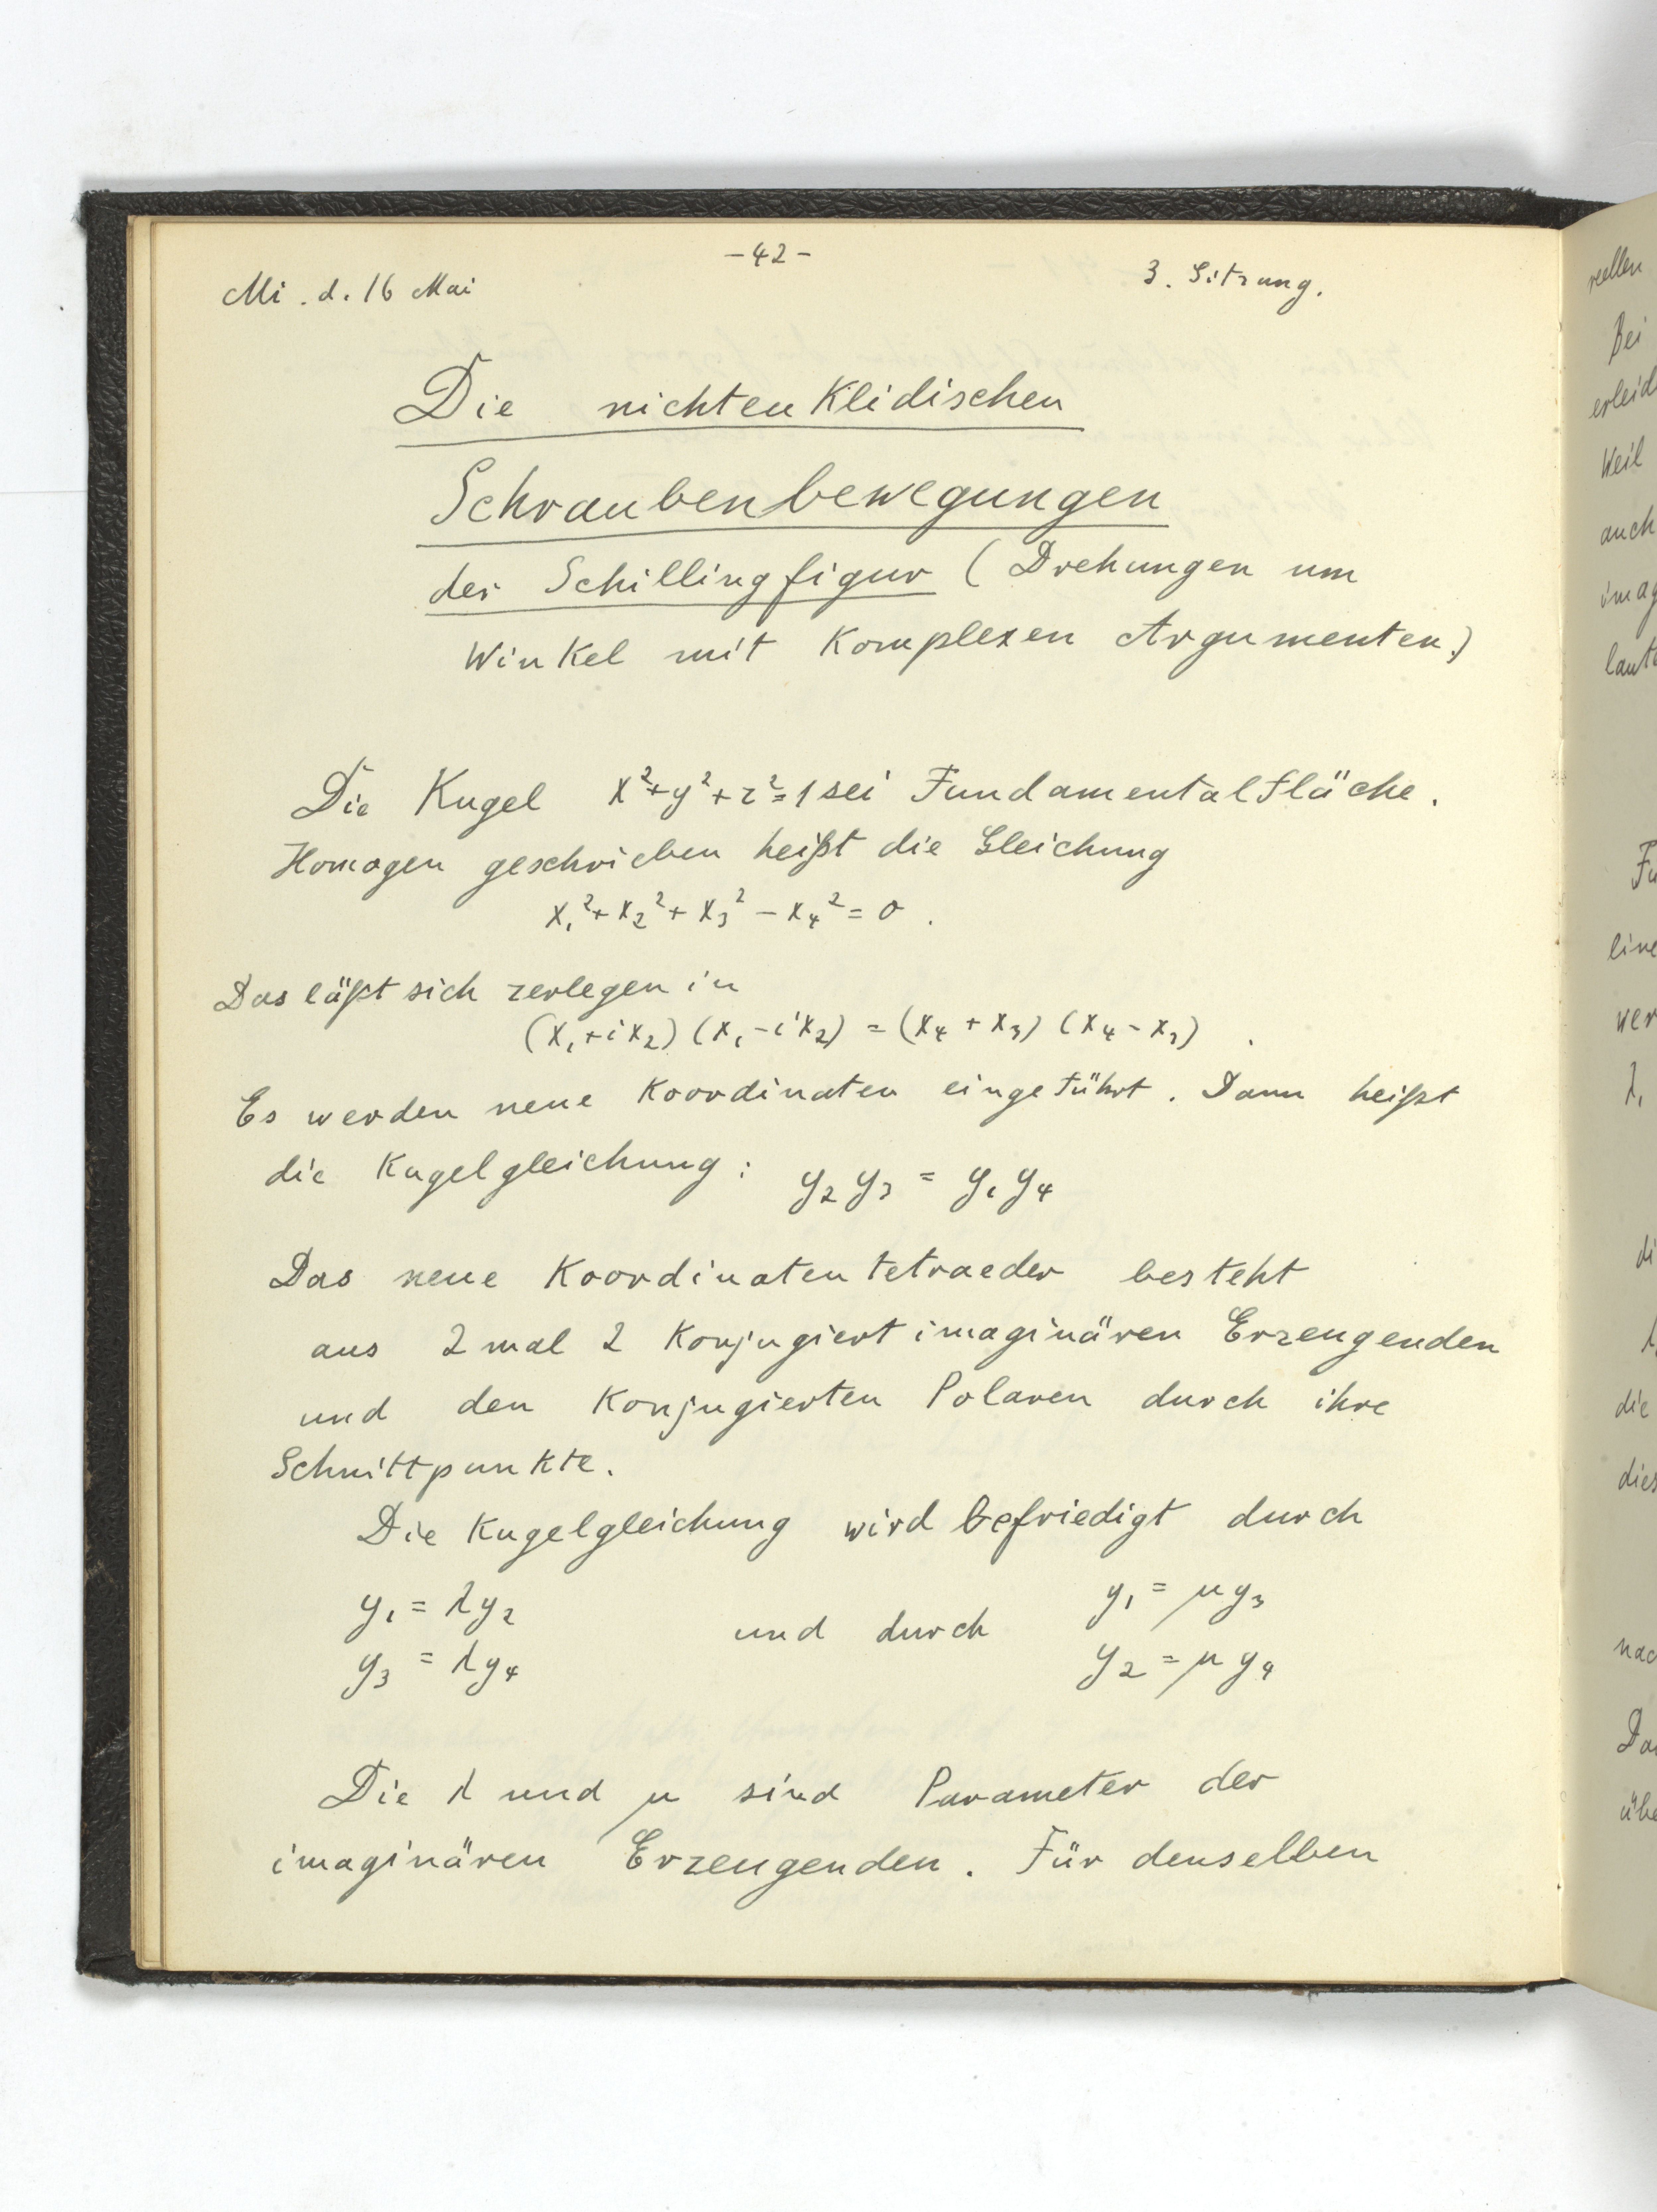 -42-
Mi. d. 16 Mai
3. Sitzung.
Die nichteuklidischen
Schraubenbewegungen
der Schillingfigur (Drehungen um
Winkel mit komplexen Argumenten.)
Die Kugel x²+y²+z²=1 sei Fundamentalfläche.
Homogen geschrieben heißt die Gleichung
x₁²+x₂²+x₃²-x₄²=0.
Das läßt sich zerlegen in
(x₁+ix₂)(x₁-ix₂)=(x₄+x₃)(x₄-x₃).
Es werden neue Koordinaten eingeführt. Dann heißt
die Kugelgleichung: y₂y₃=y₁y₄
Das neue Koordinatentetraeder besteht
aus 2mal 2 konjugiert imaginären Erzeugenden
und den konjugierten Polaren durch ihre
Schnittpunkte.
Die Kugelgleichung wird befriedigt durch
y₁=λy₂
y₃=λy₄
und durch
y₁=μy₃
y₂=μy₄
Die λ und μ sind Parameter der
imaginären Erzeugenden. Für denselben
reellen
Bei
erleid
Weil
auch
imag
Fu
line
wer
λ₁
di
die
dies
nac
Da
übe